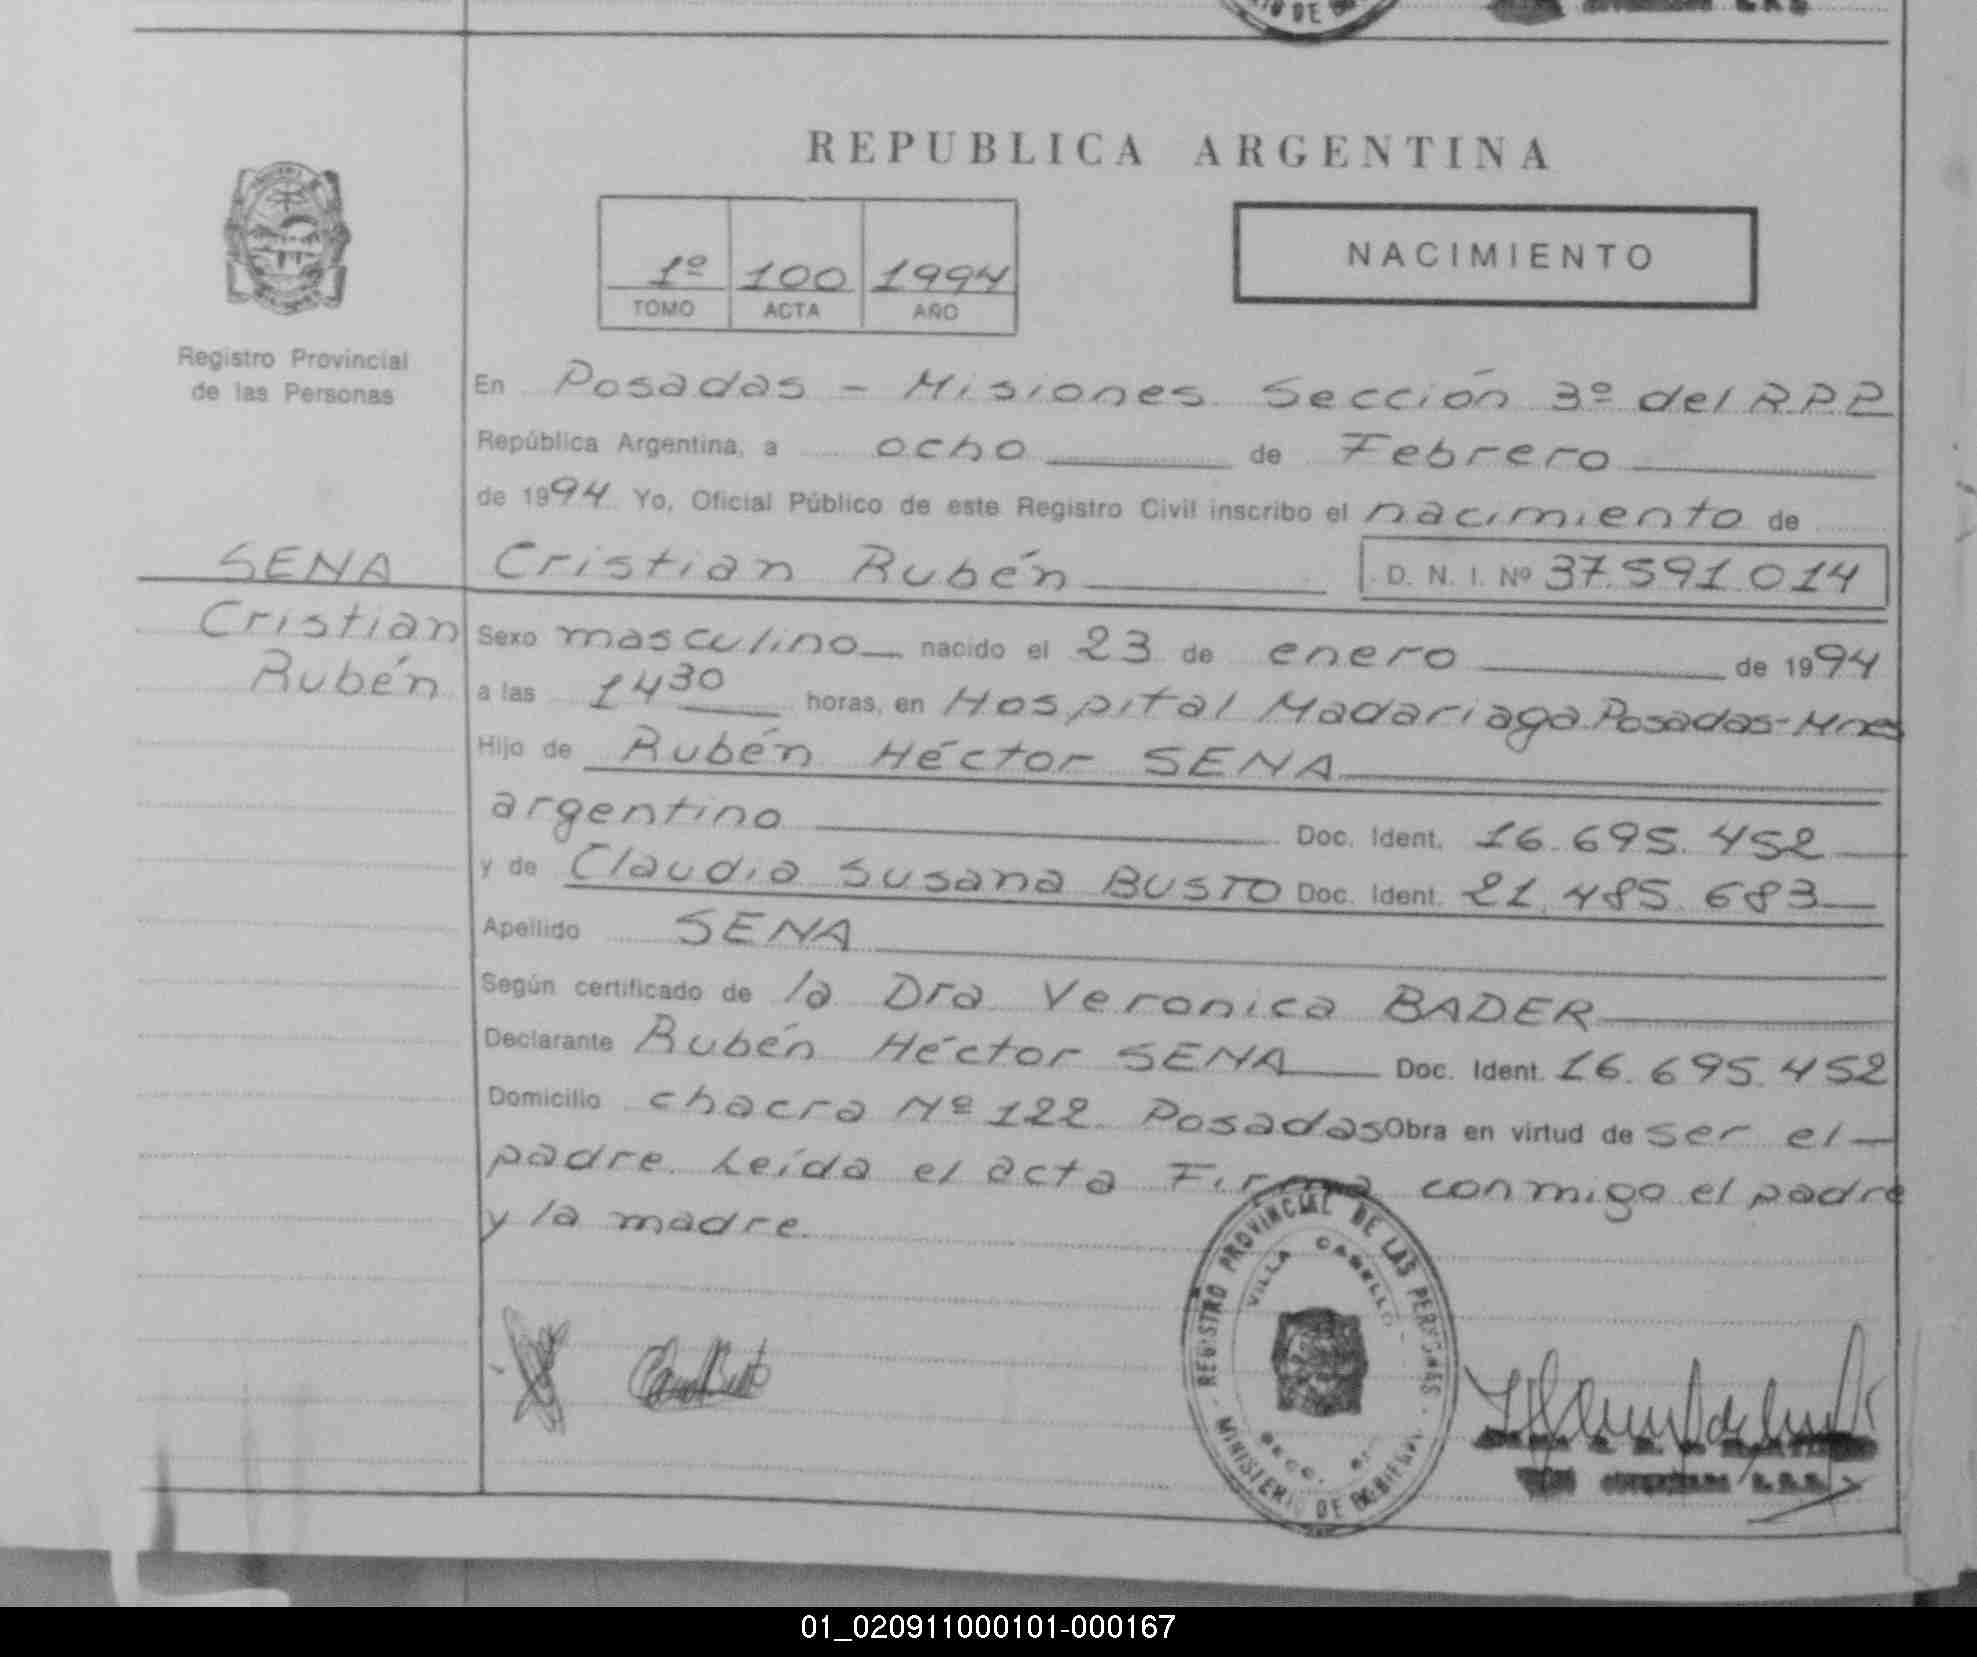 REPUBLICA ARGENTINA
NACIMIENTO
1º 100 1994
TOMO ACTA AÑO
Registro Provincial
de las Personas
En Posadas - Misiones. Sección 3º del R.P.P
República Argentina, a ocho de Febrero
de 1994 Yo, Oficial Público de este Registro Civil inscribo el nacimiento de
SENA
Cristian
Rubén
Cristian Rubén D. N. I. Nº 37.591.014
Sexo masculino nacido el 23 de enero de 1994
a las 14 30 horas, en Hospital Madariaga Posadas-Mnes
Hijo de Rubén Héctor SENA
argentino Doc. Ident. 16.695.452
y de Claudia Susana BUSTO Doc. Ident. 21.485.683
Apellido SENA
Según certificado de la Dra Veronica BADER
Declarante Rubén Héctor SENA Doc. Ident. 16.695.452
Domicilio chacra Nº 122. Posadas Obra en virtud de ser el
padre. Leída el acta Firma conmigo el padre
y la madre.
REGISTRO PROVINCIAL DE LAS PERSONAS
VILLA CABELLO
MINISTERIO DE GOBIERNO
01_020911000101-000167